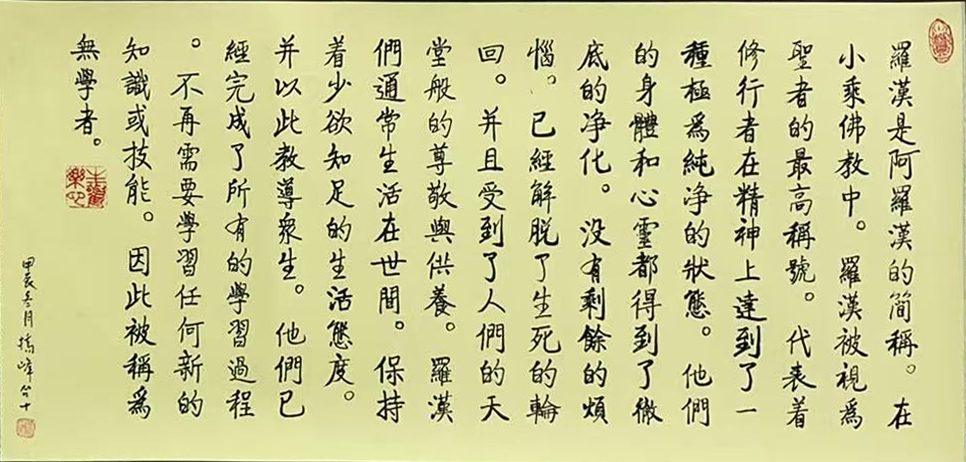 羅漢是阿羅漢的简稱。在
小乘佛教中。羅漢被視爲
聖者的最高稱號。代表着
修行者在精神上達到了一
種極爲純净的狀態。他們
的身體和心靈都得到了徹
底的净化。没有剩餘的煩
惱。已經解脱了生死的輪
回。并且受到了人們的天
堂般的尊敬與供養。羅漢
們通常生活在世間。保持
着少欲知足的生活態度。
并以此教導衆生。他們已
經完成了所有的學習過程
。不再需要學習任何新的
知識或技能。因此被稱爲
無學者。